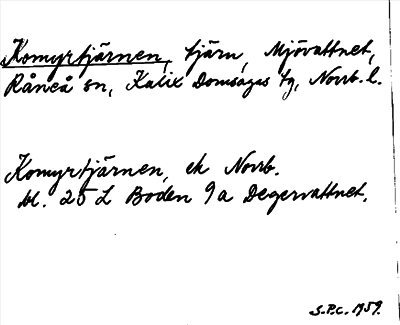 Komyrtjärnen, tjärn, Mjövattnet,
Råneå sn, Kalix Domsagas tg, Norrb. l.
Komyrtjärnen, ek Norrb.
bl. 25 L Boden 9a Degervattnet.
S.P.C. 1959.